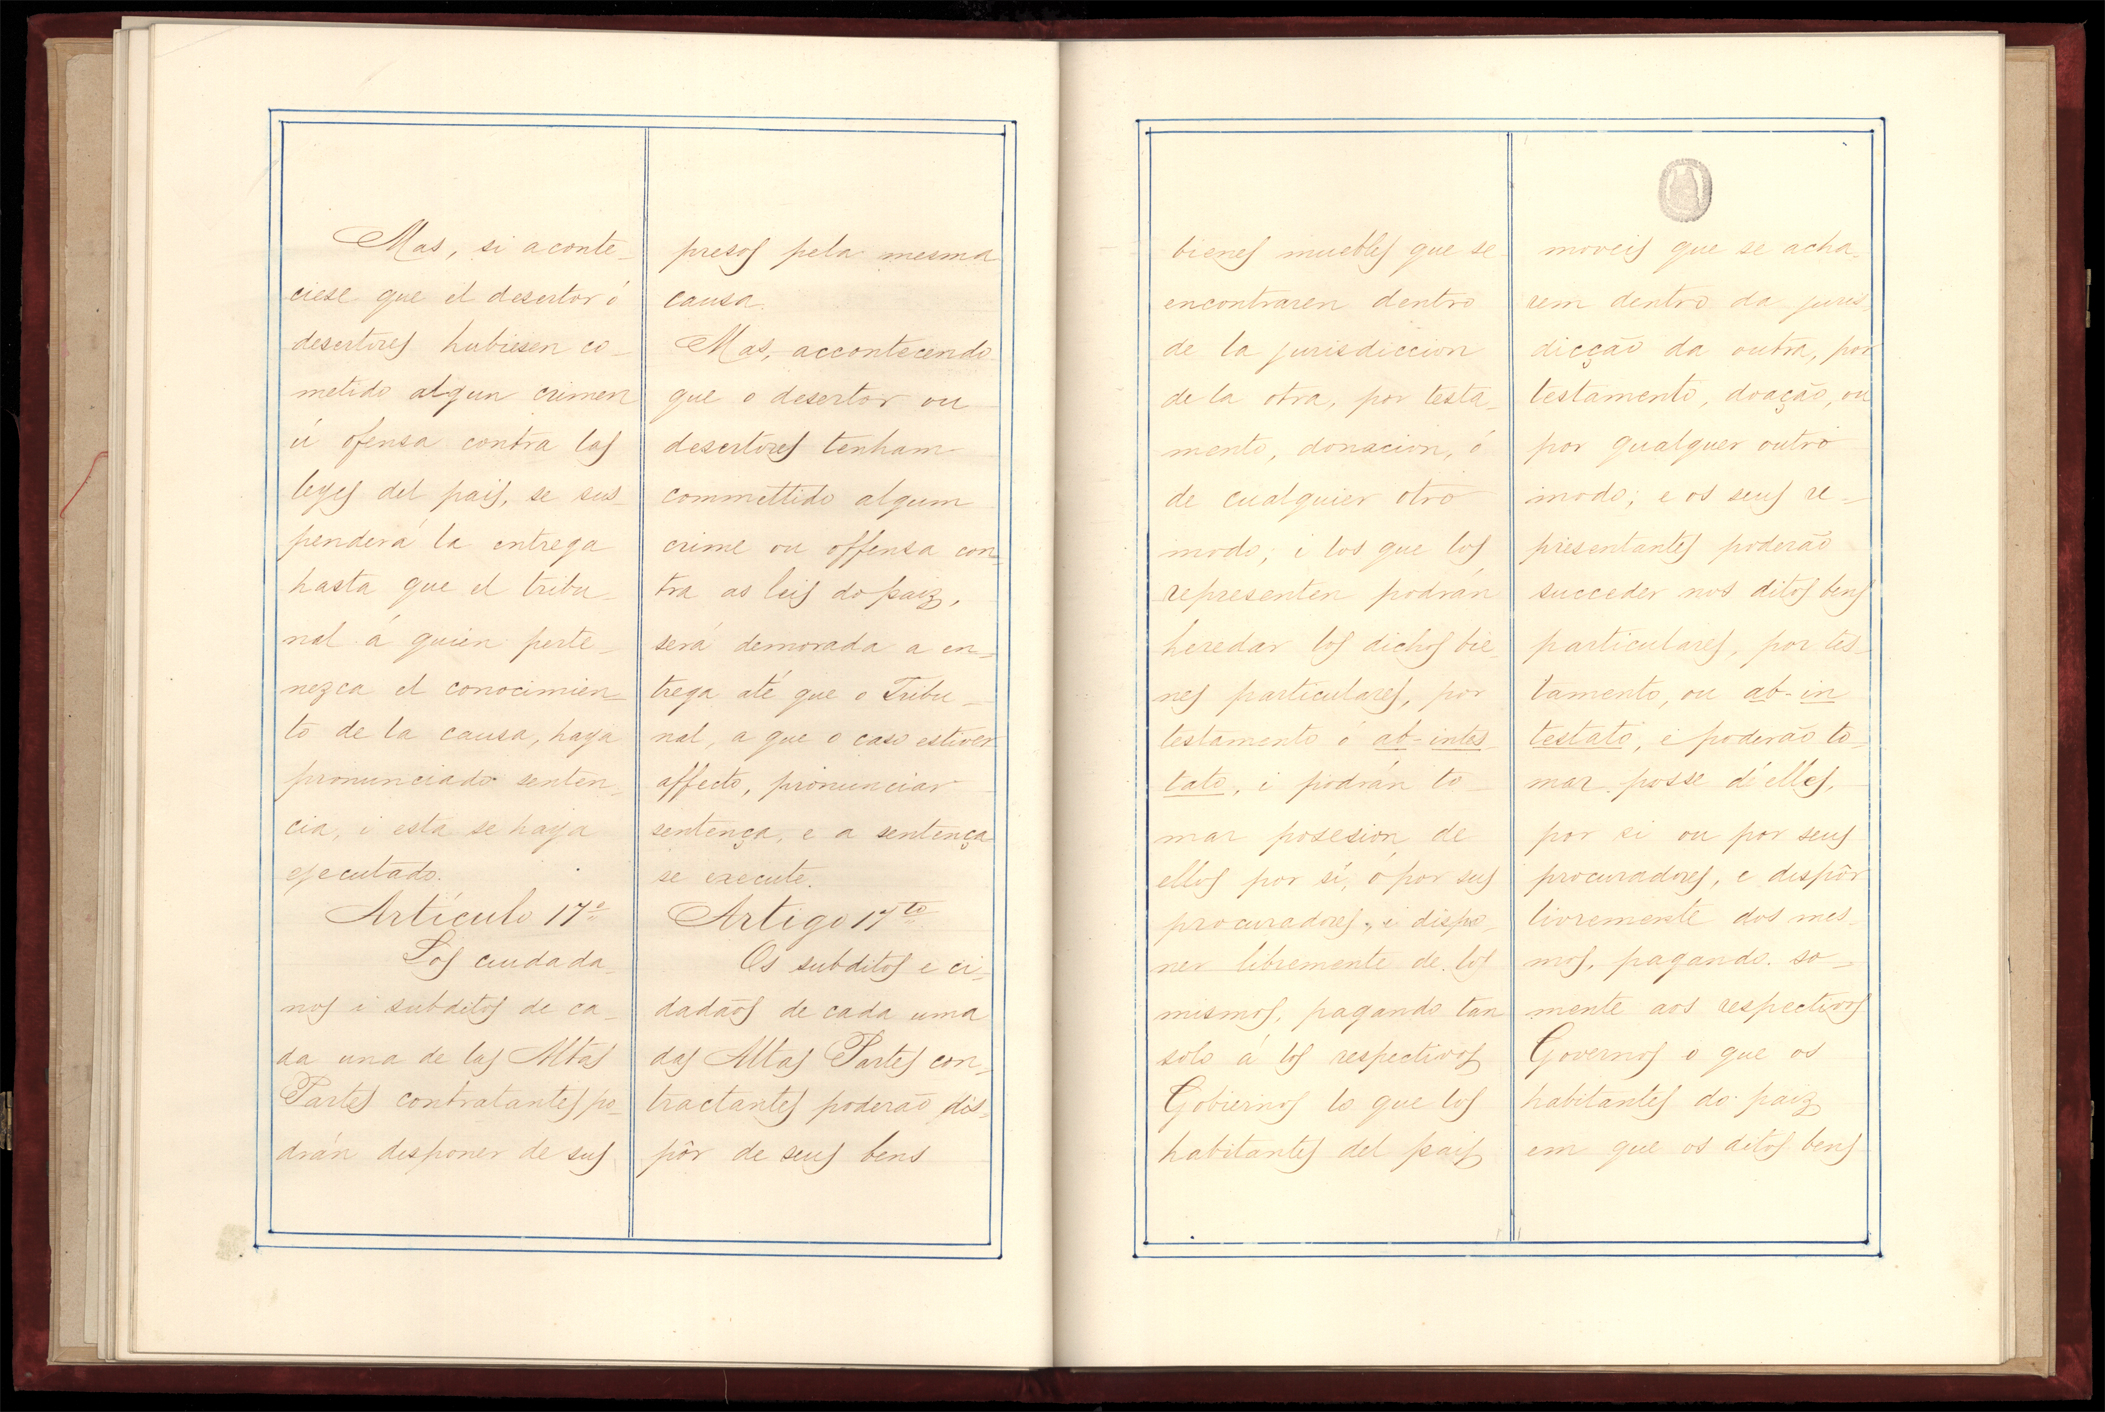 Mas, si aconte-
ciese que el desertor ó
desertores hubiesen co-
metido algun crimen
ú ofensa contra las
leyes del pais, se sus-
penderá la entrega
hasta que el tribu-
nal á quien perte-
nezca el conocimien-
to de la causa, haya
pronunciado senten-
cia, i esta se haya
ejecutado.
Artículo 17º
Los ciudada-
nos i subditos de ca-
da una de las Altas
Partes contratantes po-
drán disponer de sus
presos pela mesma
causa.
Mas, accontecendo
que o desertor ou
desertores tenham
commettido algum
crime ou offensa con-
tra as leis do paiz,
será demorada a en-
trega até que o Tribu-
nal, a que o caso estiver
affecto, pronunciar
sentença, e a sentença
se execute.
Artigo 17to
Os subditos e ci-
dadãos de cada uma
das Altas Partes con-
tractantes poderão dis-
pôr de seus bens
bienes muebles que se
encontraren dentro
de la jurisdiccion
de la otra, por testa-
mento, donacion, ó
de cualquier otro
modo; i los que los
representen podrán
heredar los dichos bie-
nes particulares, por
testamento ó ab-intes-
tato, i podrán to-
mar posesion de
ellos por sí, ó por sus
procuradores, i dispo-
ner libremente de los
mismos, pagando tan
solo á los respectivos
Gobiernos lo que los
habitantes del pais
moveis que se acha-
rem dentro da juris-
dicção da outra, por
testamento, doação, ou
por qualquer outro
modo; e os seus re-
presentantes poderão
succeder nos ditos bens
particulares, por tes-
tamento, ou ab-in
testato, e poderão to-
mar posse d'elles,
por si ou por seus
procuradores, e dispôr
livremente dos mes-
mos, pagando so-
mente aos respectivos
Governos o que os
habitantes do paiz
em que os ditos bens